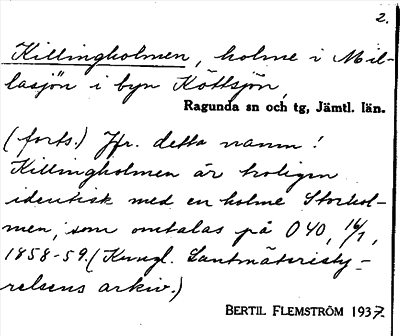 2.
Killingholmen, holme i Mil-
lasjön i byn Köttsjön,
Ragunda sn och tg, Jämtl. län.
(forts.) Jfr. detta namn!
Killingholmen är troligen
identisk med en holme Storhol-
men, som omtalas på O40, 16/1,
1858-59. (Kungl. Lantmäteristy-
relsens arkiv.)
BERTIL FLEMSTRÖM 1937.